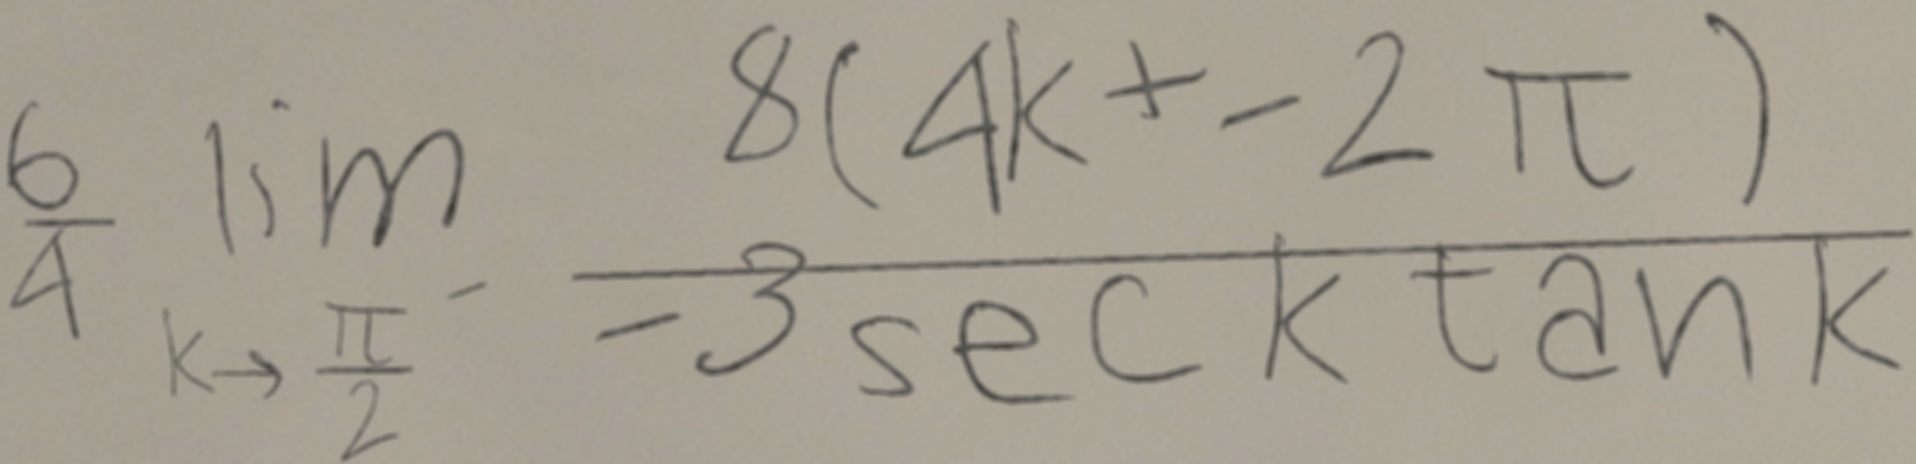 \frac{6}{4} \lim_{k \to \frac{\pi}{2}^{-}} \frac{8(4k+-2\pi)}{-3\sec k \tan k}